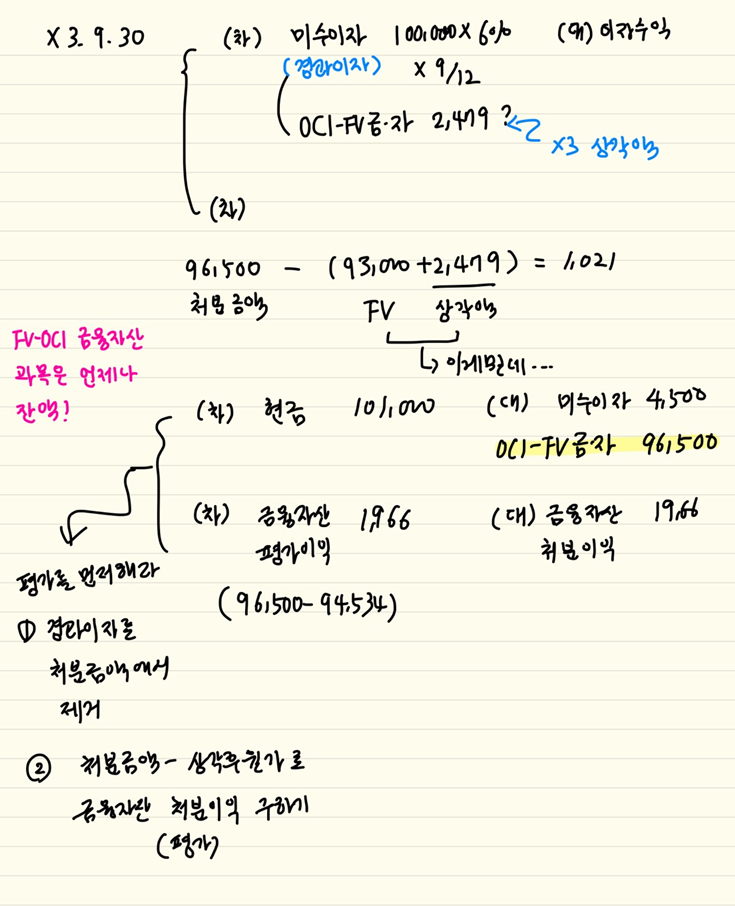 X 3. 9. 30 (차) 미수이자 100,000 x 6% (대) 이자수익
(경과이자) x 9/12
OCI-FV금.자 2,479 ?
X3 상각액
(차)
96,500 - (93,000+2,479) = 1,021
처분금액 FV 상각액
↳ 이게뭔데...
FV-OCI 금융자산
과목은 언제나
잔액!
(차) 현금 101,000 (대) 미수이자 4,500
OCI-FV금자 96,500
(차) 금융자산 1,966 (대) 금융자산 1,966
평가이익 처분이익
평가를 먼저해라
(96,500-94,534)
① 경과이자를
처분금액에서
제거
② 처분금액 - 상각후원가로
금융자산 처분이익 구하기
(평가)